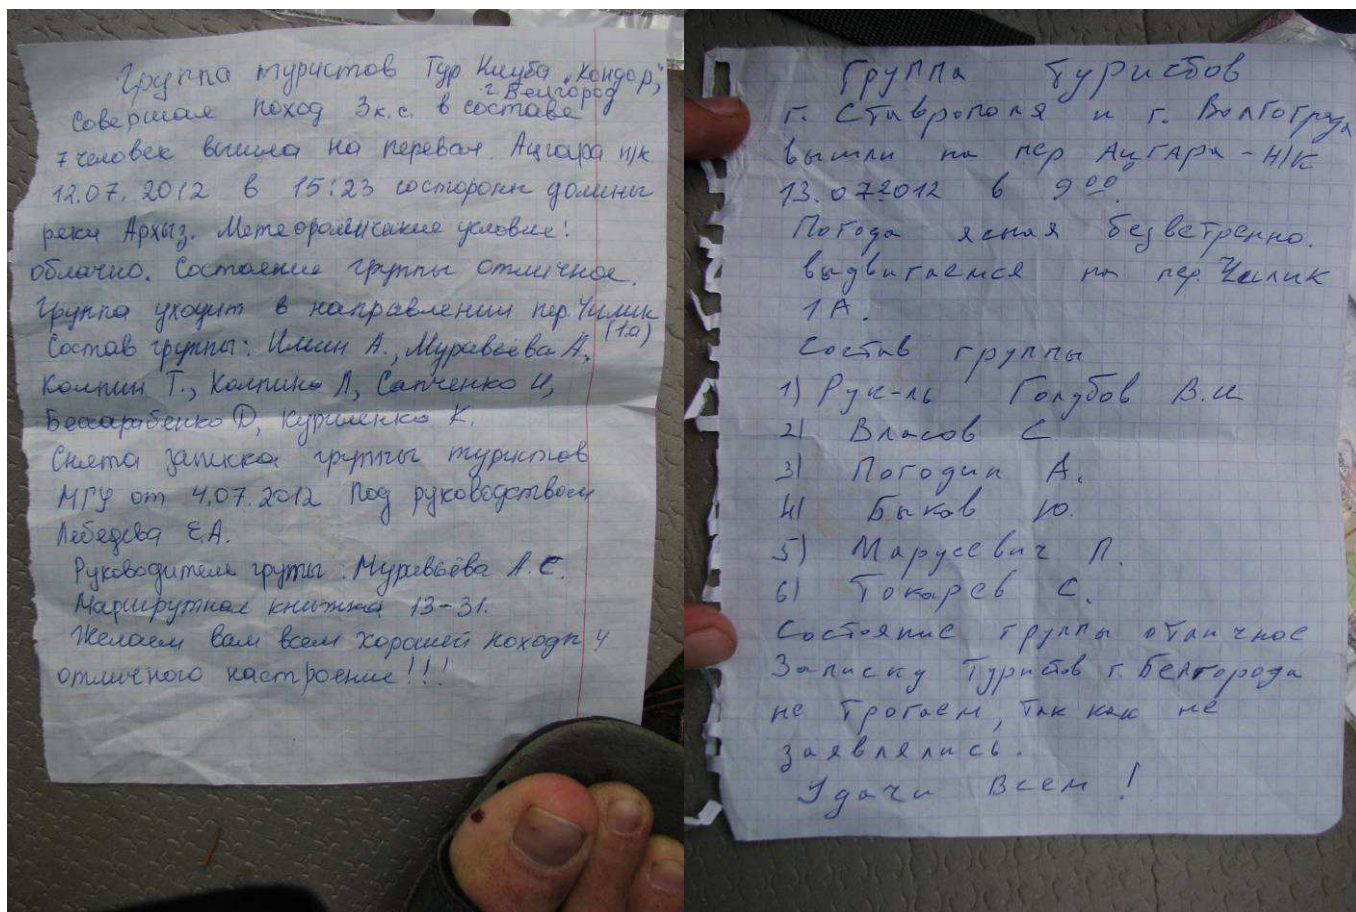 Группа туристов Тур Клуба „Кондор”,
г. Белгород
Совершая поход 3 к.с. в составе
7 человек вышла на перевал Ацгара н/к
12.07.2012 в 15:23 состороны долины
реки Архыз. Метеорологические условие:
облачно. Состояние группы отличное.
Группа уходит в направлении пер. Чилик
(1а)
Состав группы: Илиин А., Муравьёва А,
Колпин Т., Колпина Л, Сапченко И,
Бессарабенко Д, Куриленко К.
Снята записка группы туристов
МГУ от 4.07.2012 Под руководством
Лебедева Е.А.
Руководитель групы: Муравьёва А.С.
Маршрутная книжка 13-31.
Желаем вам всем хорошей походы и
отличного настроение!!!
Группа туристов
г. Ставрополя и г. Волгограда
вышли на пер Ацгара - Н/К
13.072012 в 9 00.
Погода ясная безветренно.
выдвигаемся на пер. Чилик
1А.
Состав группы
1) Рук-ль Голубов В.И
2) Власов С
3) Погодин А.
4) Быков Ю.
5) Марусевич П.
6) Токарев С.
Состояние группы отличное
Записку Туристов г. Белгорода
не трогаем, так как не
заявлялись.
Удачи Всем!